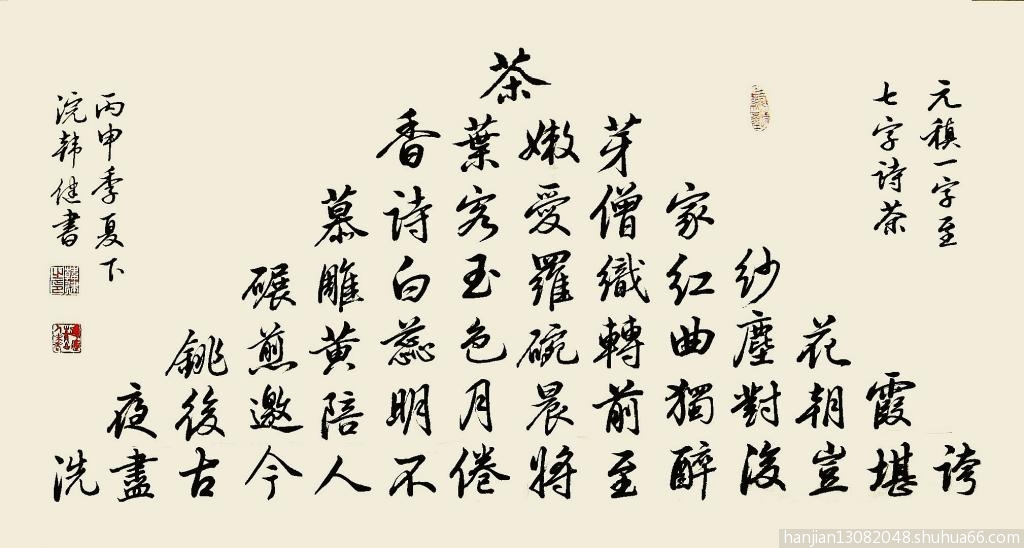 元稹一字至
七字詩茶
茶
香葉嫩芽
慕詩客愛僧家
碾雕白玉羅織紅紗
銚煎黃蕊色碗轉曲塵花
夜後邀陪明月晨前獨對朝霞
洗盡古今人不倦將至醉後豈堪誇
丙申季夏下
浣韓健書
hanjian13082048.shuhua66.com